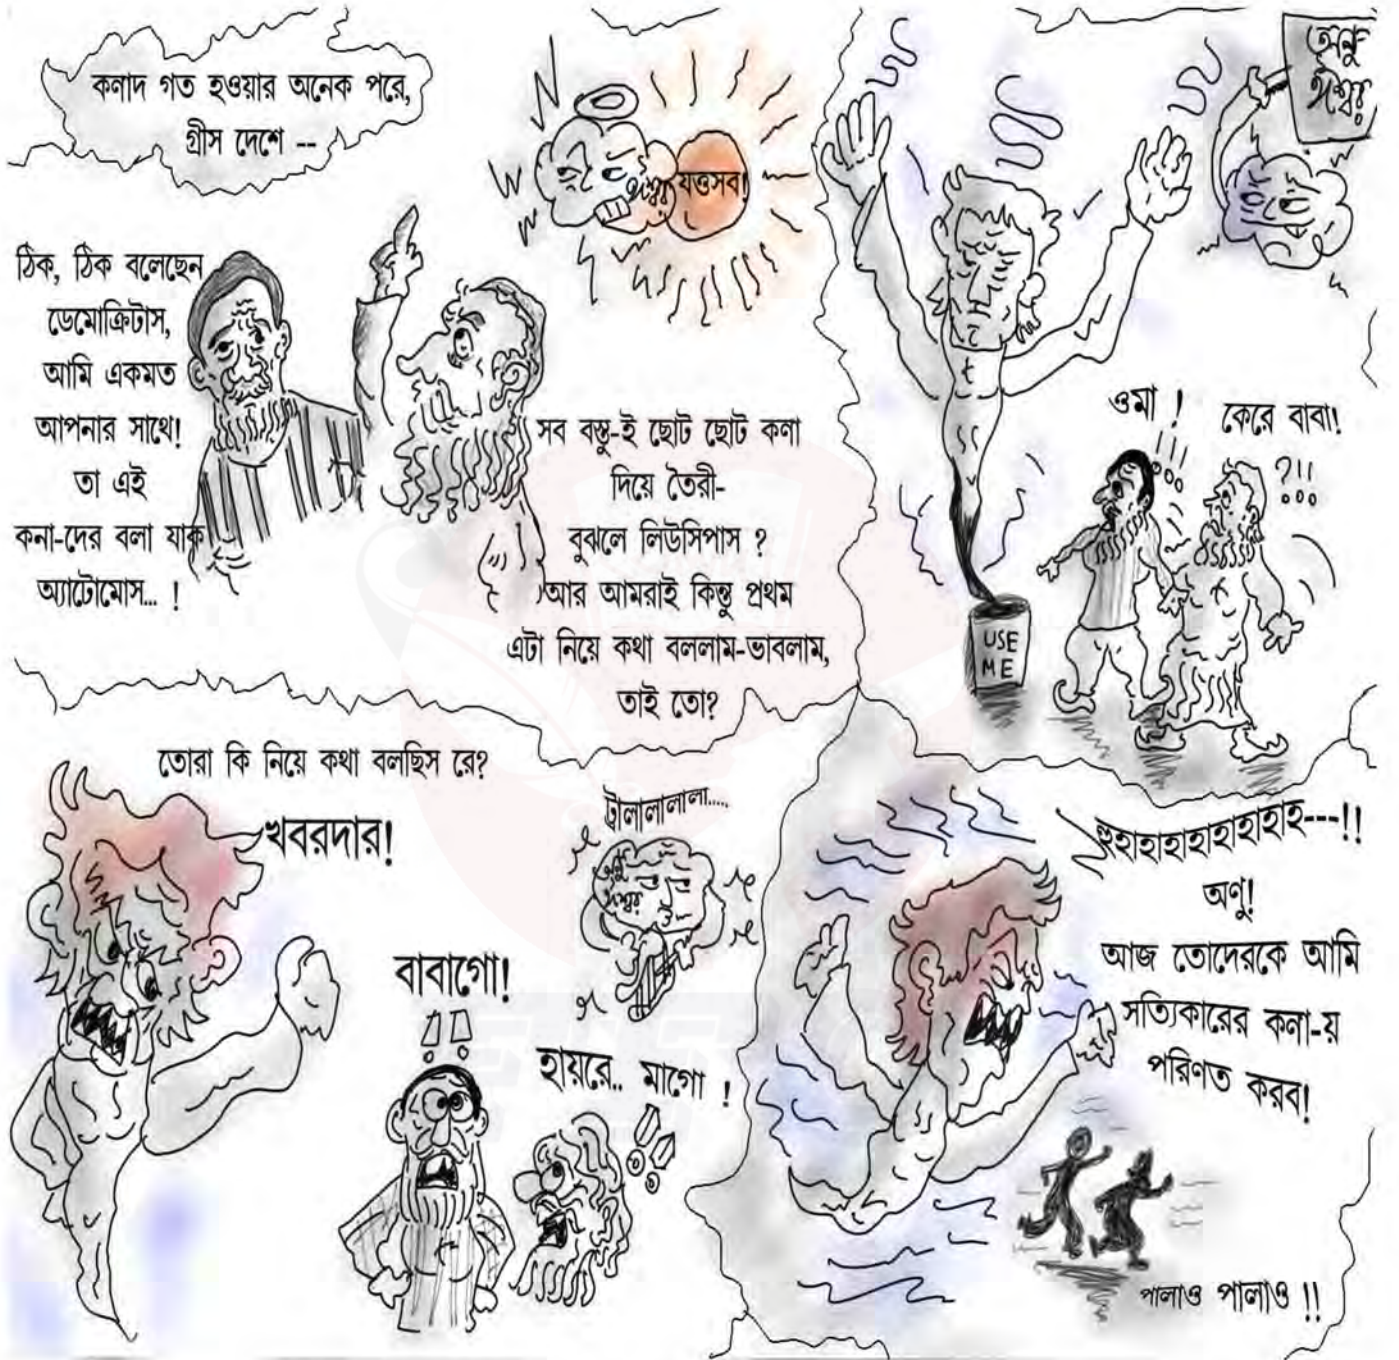 কণাদ গত হওয়ার অনেক পরে,
গ্রীস দেশে --
যত্তসব!
ঠিক, ঠিক বলেছেন
ডেমোক্রিটাস,
আমি একমত
আপনার সাথে!
তা এই
কনা-দের বলা যাক
অ্যাটোমোস... !
সব বস্তু-ই ছোট ছোট কণা
দিয়ে তৈরী-
বুঝলে লিউসিপাস ?
আর আমরাই কিন্তু প্রথম
এটা নিয়ে কথা বললাম-ভাবলাম,
তাই তো?
ঈশ্বর
ওমা !
!!!
কেরে বাবা!
?!!
USE
ME
তোরা কি নিয়ে কথা বলছিস রে?
খবরদার!
ট্রালালালালা.....
বাবাগো!
!!
হায়রে.. মাগো !
!!
হুহাহাহাহাহাহাহাহ---!!
অণু!
আজ তোদেরকে আমি
সত্যিকারের কনা-য়
পরিণত করব!
পালাও পালাও !!